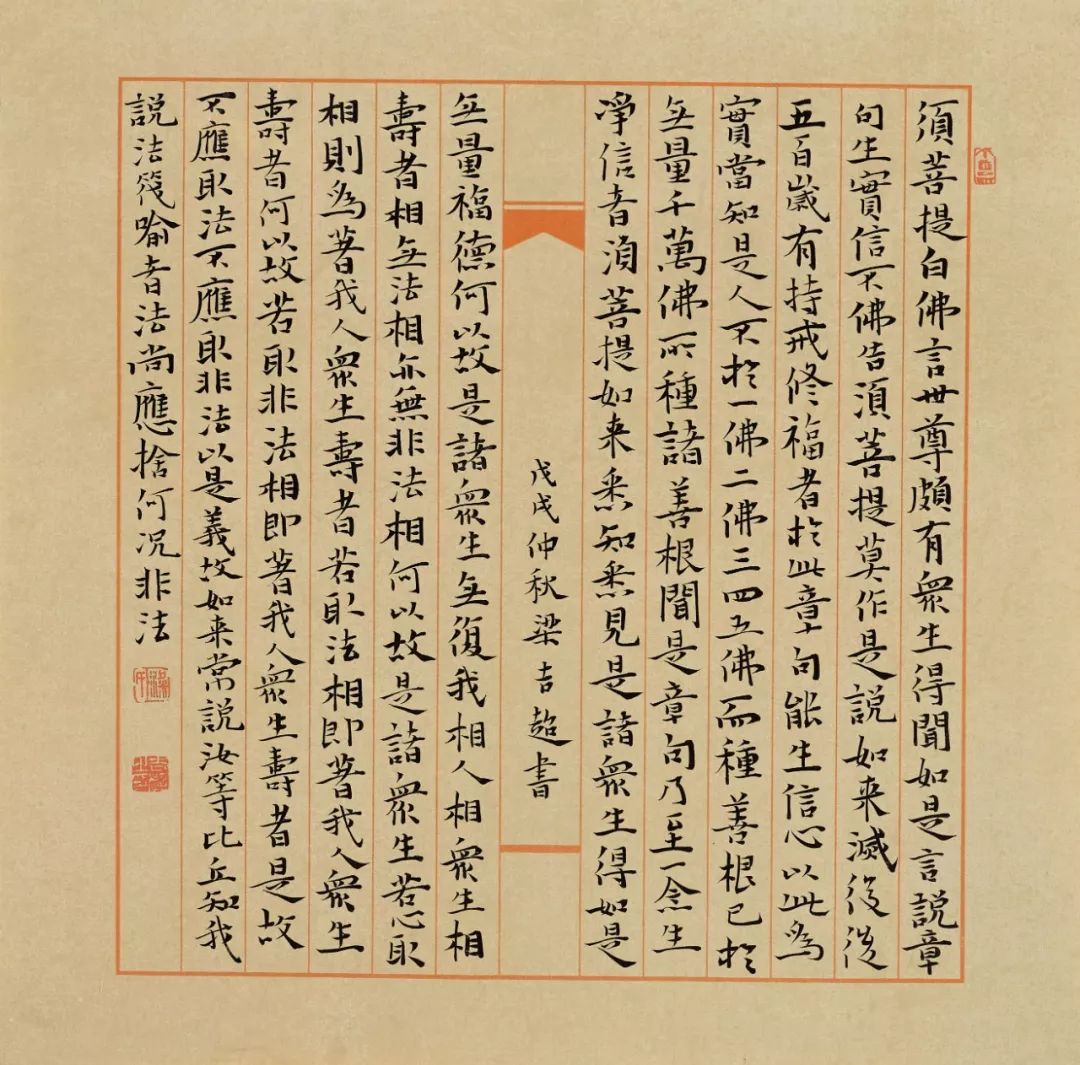 須菩提白佛言世尊頗有衆生得聞如是言說章
句生實信不佛告須菩提莫作是說如来滅後後
五百歲有持戒修福者於此章句能生信心以此為
實當知是人不於一佛二佛三四五佛而種善根已於
无量千萬佛所種諸善根聞是章句乃至一念生
淨信者須菩提如来悉知悉見是諸衆生得如是
无量福德何以故是諸衆生无復我相人相衆生相
壽者相无法相亦無非法相何以故是諸衆生若心取
相則為著我人衆生壽者若取法相即著我人衆生
壽者何以故若取非法相即著我人衆生壽者是故
不應取法不應取非法以是義故如来常說汝等比丘知我
說法筏喻者法尚應捨何况非法
戊戌仲秋梁吉超書